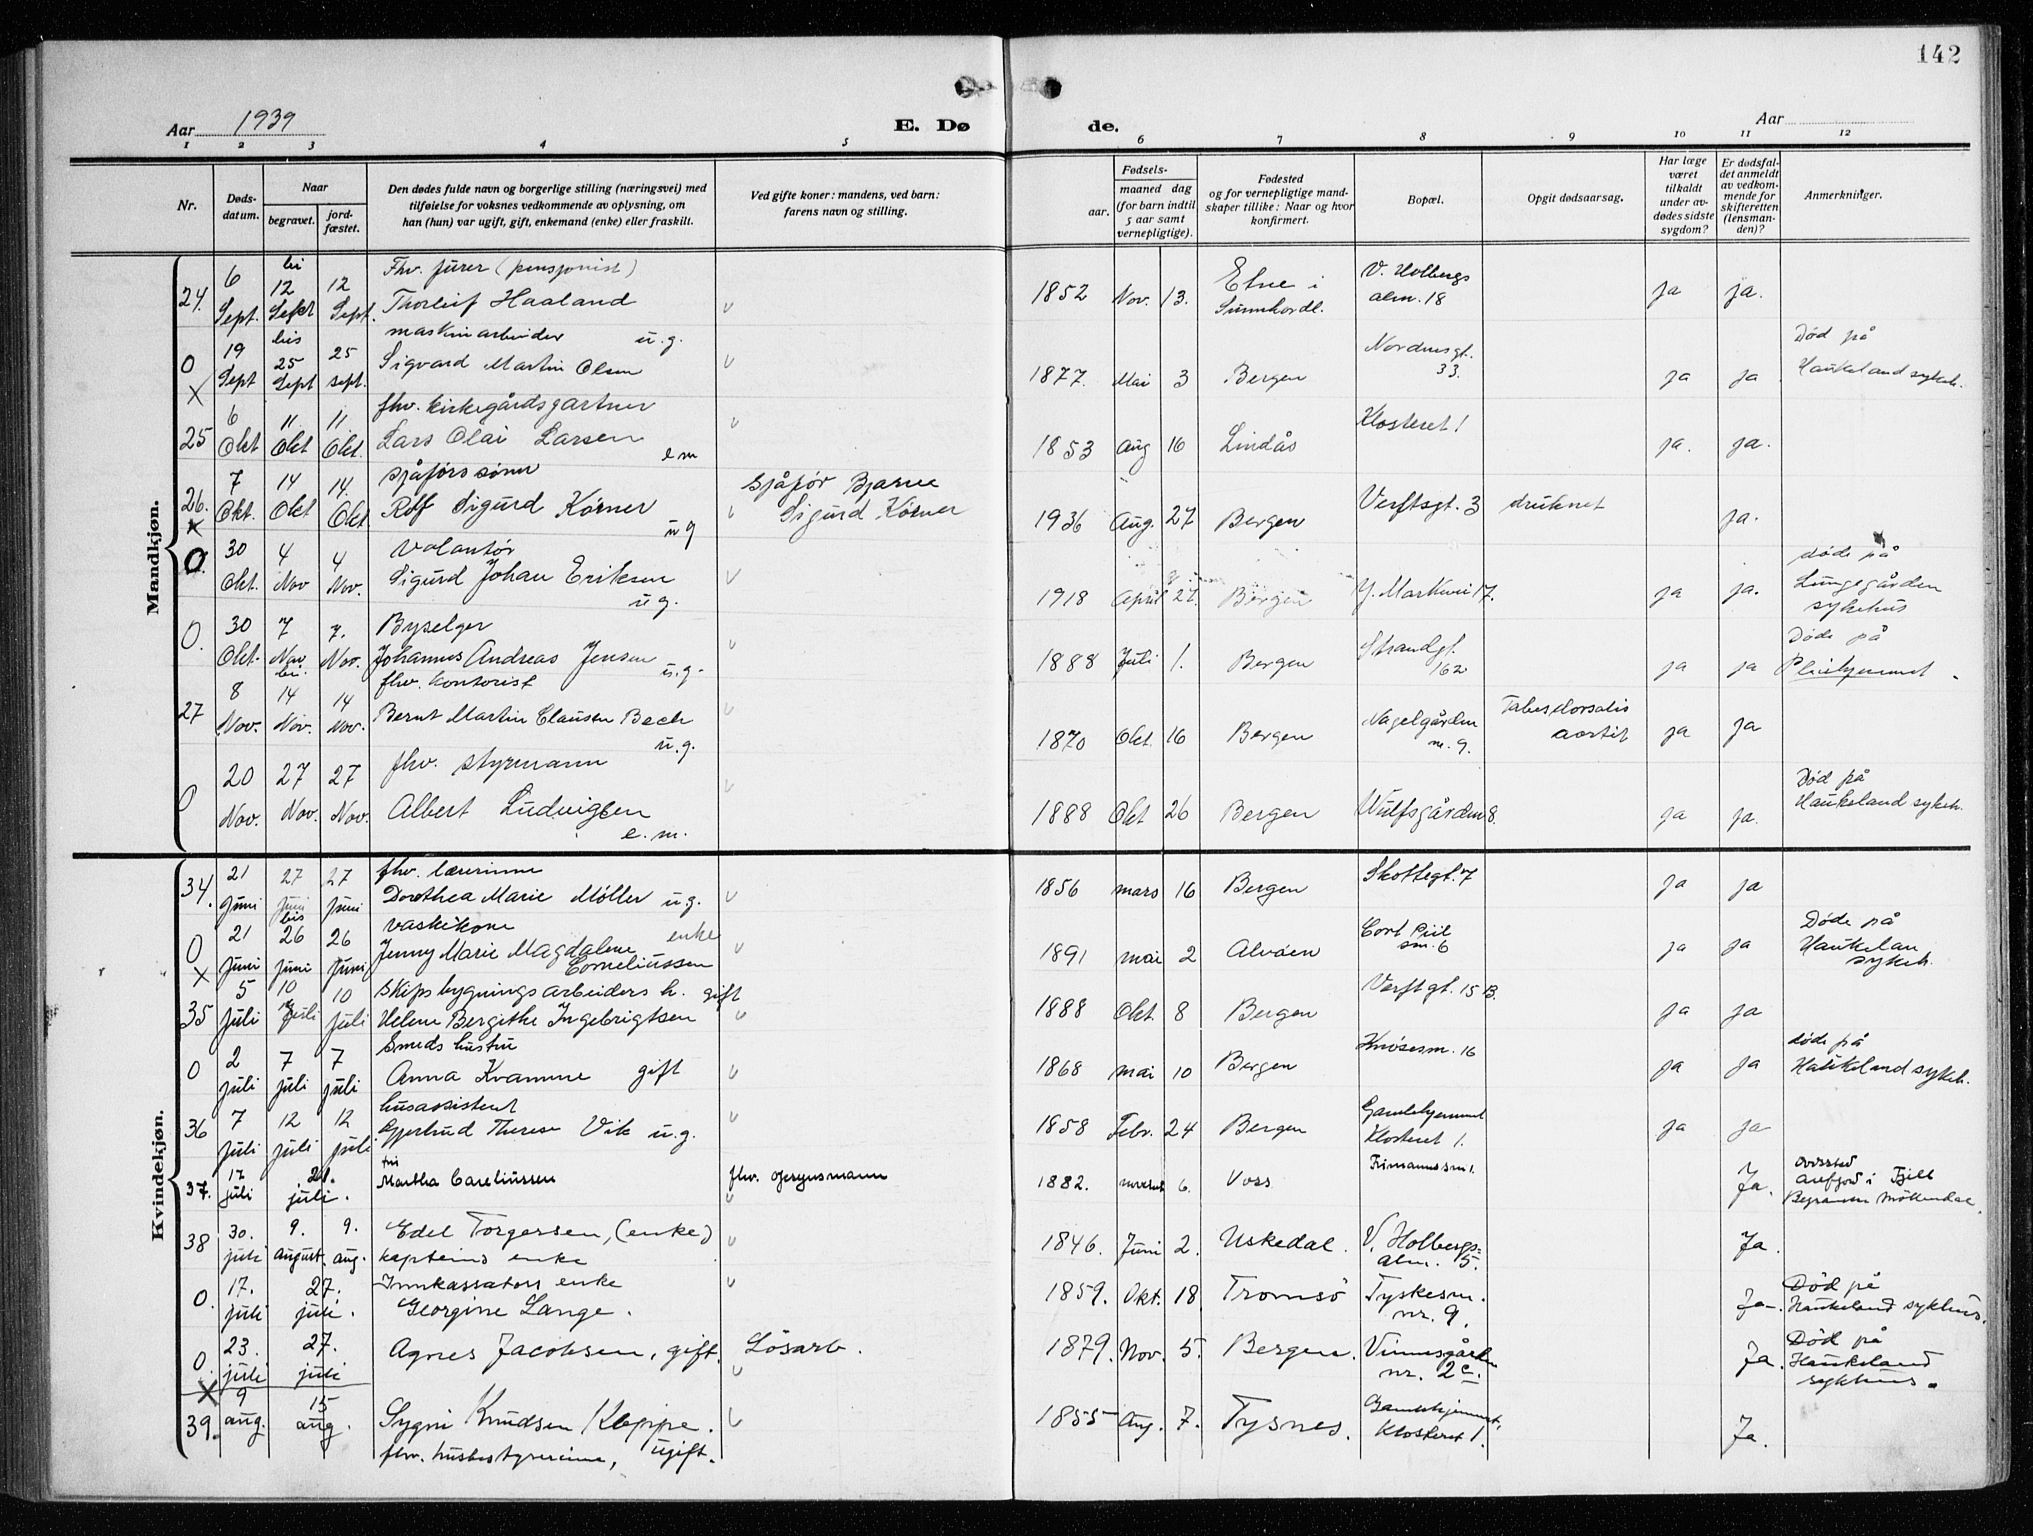 142
Aar 1939
E. Dø
de.
Aar
1 2 3 4 5 6 7 8 9 10 11 12
Nr.
Døds-datum.
Naar
begravet.
jord-fæstet.
Den dødes fulde navn og borgerlige stilling (næringsvei) med
tilføielse for voksnes vedkommende av oplysning, om
han (hun) var ugift, gift, enkemand (enke) eller fraskilt.
Ved gifte koner: mandens, ved barn:
farens navn og stilling.
Fødsels-
aar.
maaned dag
(for barn indtil
5 aar samt
vernepligtige).
Fødested
og for vernepligtige mand-
skaper tillike: Naar og hvor
konfirmert.
Bopæl.
Opgit dødsaarsag.
Har læge
været
tilkaldt
under av-
dødes sidste
sygdom?
Er dødsfal-
det anmeldt
av vedkom-
mende for
skifteretten
(lensman-
den)?
Anmerkninger.
Mandkjøn.
24. 6 Sept. bis 12 Sept 12 Sept. Fhv. furer (pensjonist)
Thorleif Haaland 1852 Nov. 13. Etne i Sunnhordl. V. Holbergs alm. 18 ja ja.
0 X 19 Sept bis 25 Sept 25 sept. maskinarbeider u.g.
Sigvard Martin Olsen 1877. Mai 3 Bergen Nordnesgt. 33. ja ja Død på Haukeland sykeh.
25 6 Okt 11 Okt 11 Okt. fhv. kirkegårdsgartner
Lars Olai Larsen e m 1853 Aug 16 Lindås Klosteret 1 ja. ja.
26. x 7 Okt. 14 Okt 14. Okt sjåførs sønn
Rolf Sigurd Körner u g sjåfør Bjarne Sigurd Körner 1936 Aug. 27 Bergen Verftsgt. 3 druknet ja.
0. 30 Okt. 4 Nov 4 Nov. Volontør
Sigurd Johan Eriksen u g. 1918 April 27. Bergen Y. Markevei 17. ja ja. døde på Lungegården sykehus
0. 30 Okt. 7 Nov. 7. Nov. Byselger
Johannes Andreas Jensen u.g. 1888 Juli 1. Bergen Strandgt. 162 ja ja Døde på Pleiehjemmet
27 8 Nov. bis. 14 Nov. 14 Nov. fhv. kontorist
Bernt Martin Clausen Bech u.g. 1870 Okt. 16 Bergen Nagelgården nr. 9. Tabes dorsalis aortit ja ja
0 20 Nov. 27 Nov. 27 Nov. fhv. styrmann
Albert Ludvigsen e. m. 1888 Okt 26 Bergen Wulfsgården 8. ja ja. Død på Haukeland sykeh.
Kvindekjøn.
34. 21 Juni 27 Juni 27 Juni fhv. lærerinne
Dorothea Marie Møller u.g. 1856 mars 16 Bergen Skottegt. 7 ja ja
0 x 21 Juni bis 26 juni 26 Juni vaskekone enke
Jenny Marie Magdalene Corneliussen 1891 mai 2 Alvøen Cort Piil sm. 6 ja ja Døde på Haukelan sykeh.
35 5 Juli 10 Juli 10 juli skipsbygningsarbeiders h. gift
Helene Bergithe Ingebrigtsen 1888 Okt. 8 Bergen Verftgt. 15 B. ja ja
0 2 juli 7 juli 7 juli Smeds hustru
Anna Kvamme gift 1868 mai 10 Bergen Knøsesm. 16 ja ja døde på Haukeland sykeh.
36 7 juli 12 juli 12 juli husassistent
Gjertrud Therese Vik u.g. 1858 Febr. 24 Bergen Gamlehjemmet Klosteret 1. ja ja
37. 17 juli 21. juli. fru
Martha Careliussen fhv. 1882. 6. Voss Ja.
38 30. juli 9. august 9. aug. Edel Torgersen, (enke)
kapteins enke 1846. Juni 2. Uskedal. V. Holbergs= alm. 5. Ja.
0. 17. juli 27. juli. Innkassators enke
Georgine Lange. 1859. Okt. 18 Tromsö Tyskesm. nr. 9. Ja. Død på Haukeland sykhus.
0. X 23. juli 27. juli Agnes Jacobsen, gift. Lösarb. 1879. Nov. 5. Bergen. Vinnesgården nr. 2c. Ja. Død på Haukeland sykhus.
39. 9 aug. 15 aug. Sygni Knudsen Kleppe.
fhv. husbestyrerinne, ugift. 1855 Aug. 7. Tysnes. Gamlehjemmet, Klosteret 1. Ja.